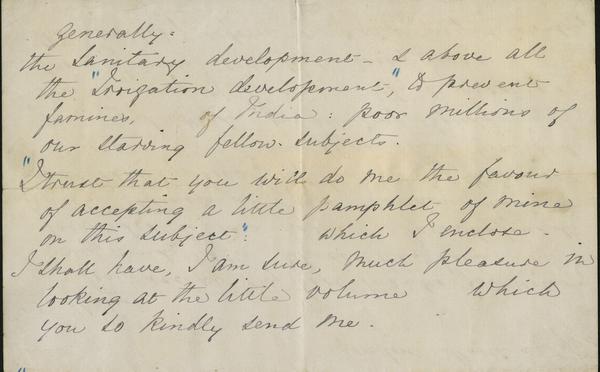 Generally:
the Sanitary development - & above all
the "Irrigation development," to prevent
famines, of India: poor millions of
our starving fellow-subjects.
"I trust that you will do me the favour
of accepting a little pamphlet of mine
on this subject": which I enclose -
I shall have, I am sure, much pleasure in
looking at the little volume which
you so kindly send me.